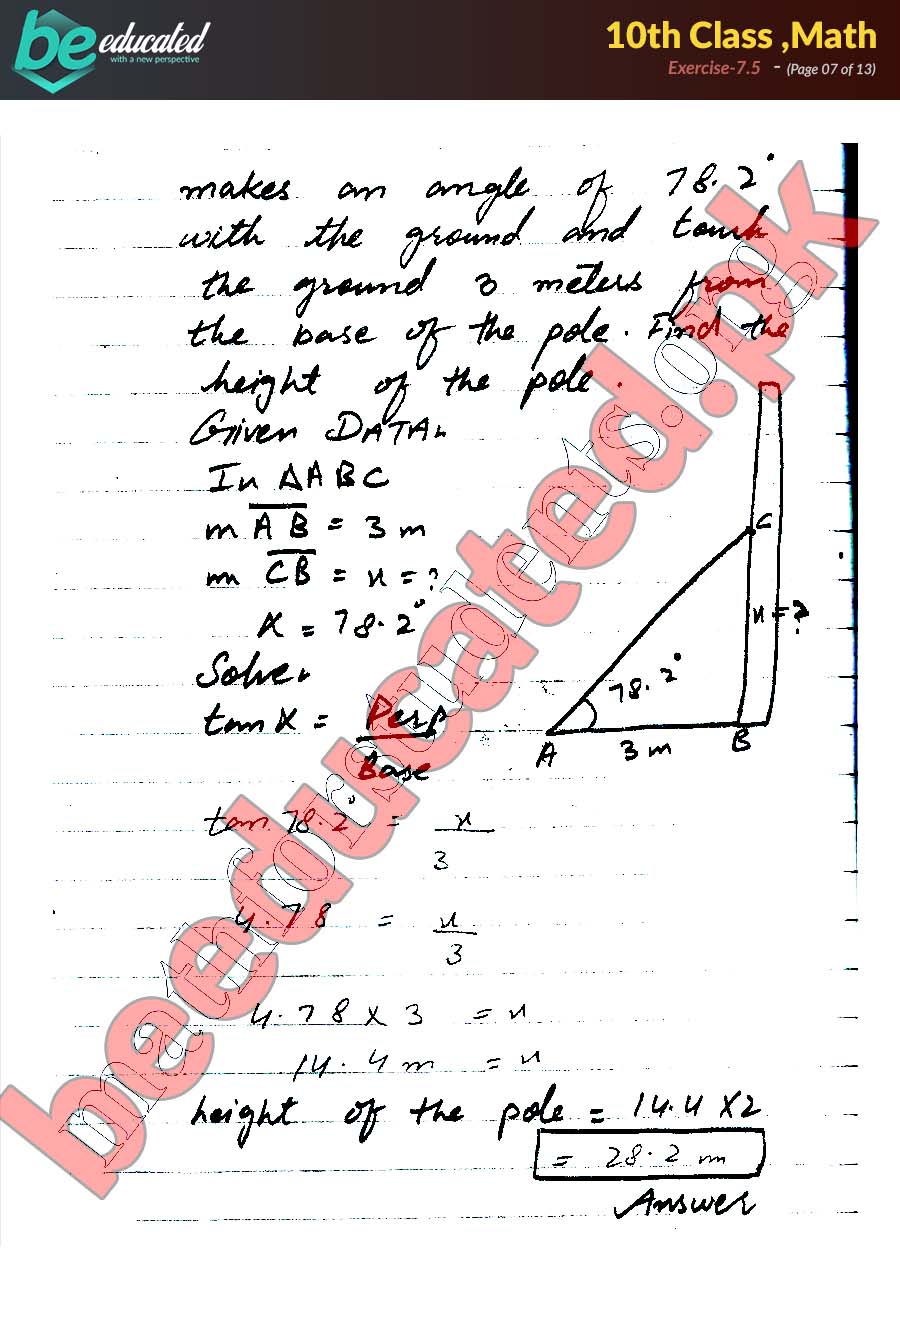 be educated
with a new perspective
10th Class ,Math
Exercise-7.5 - (Page 07 of 13)
makes an angle of 78.2°
with the ground and touch
the ground 3 meters from
the base of the pole. Find the
height of the pole.
Given DATA:
In ΔABC
m AB = 3 m
m CB = x = ?
∝ = 78.2°
Solve:
tan∝ = Perp
Base
C
x = ?
78.2°
A 3m B
tan 78.2° = x
3
4.78 = x
3
4.78 × 3 = x
14.4 m = x
height of the pole = 14.4 × 2
= 28.2 m
Answer
beeducated.pk